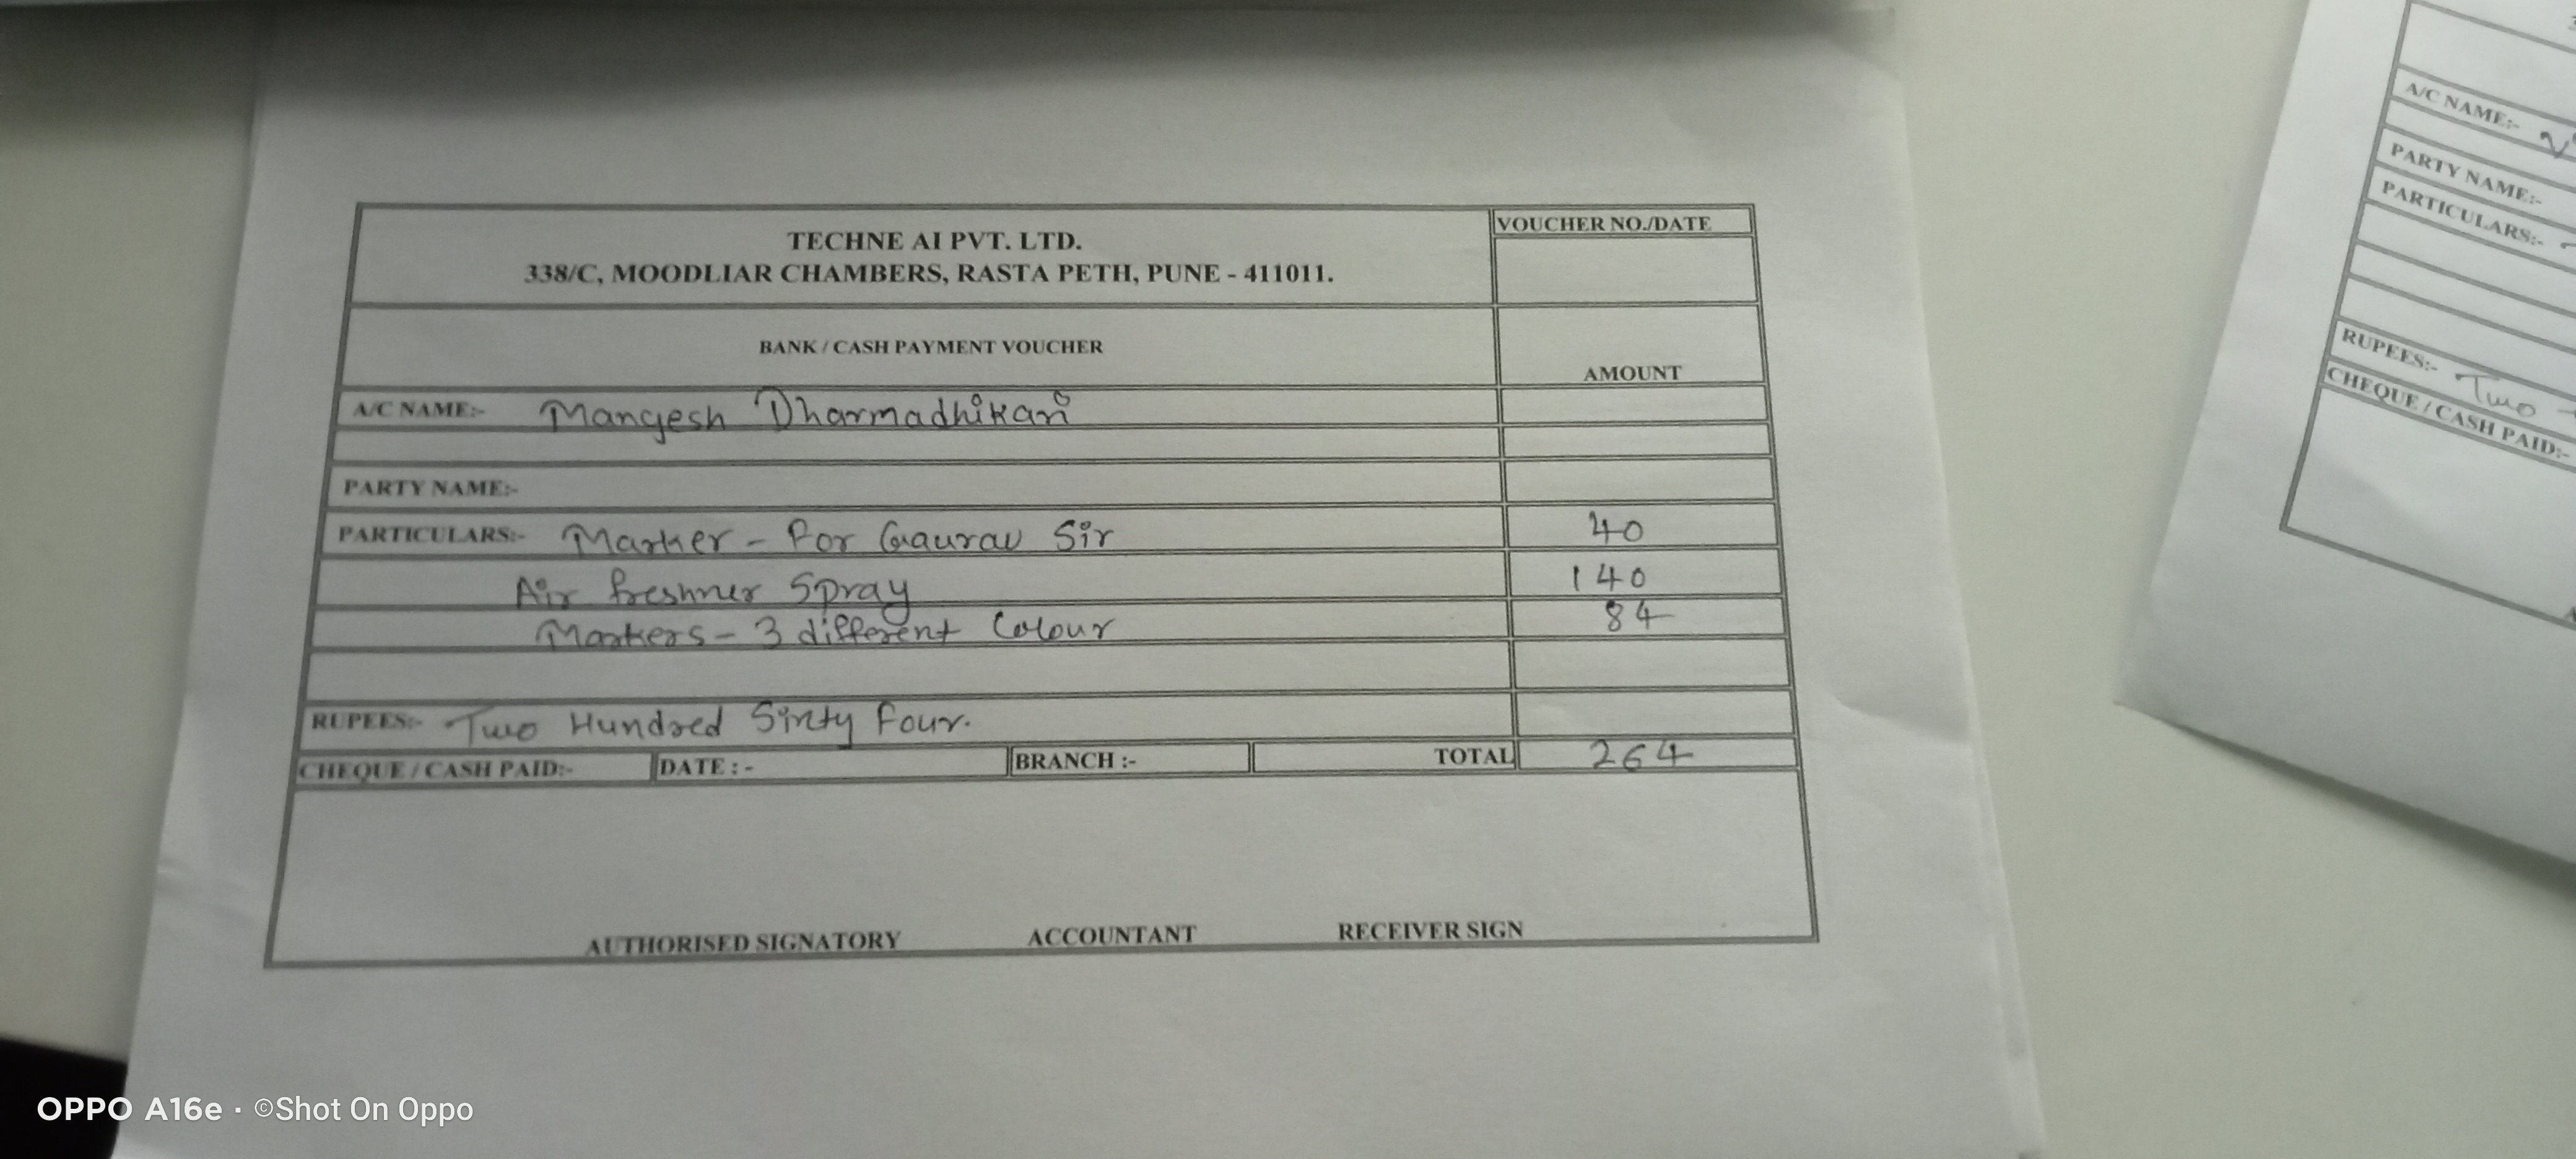 TECHNE AI PVT. LTD.
338/C, MOODLIAR CHAMBERS, RASTA PETH, PUNE - 411011.
VOUCHER NO./DATE
BANK / CASH PAYMENT VOUCHER
AMOUNT
A/C NAME:- Mangesh Dharmadhikari
PARTY NAME:-
PARTICULARS:- Marker - For Gaurav Sir 40
Air freshner Spray 140
Markers - 3 different Colour 84
RUPEES:- Two Hundred Sixty Four.
CHEQUE / CASH PAID:- DATE : - BRANCH :- TOTAL 264
AUTHORISED SIGNATORY ACCOUNTANT RECEIVER SIGN
A/C NAME:-
PARTY NAME:-
PARTICULARS:-
RUPEES:- Two
CHEQUE / CASH PAID:-
OPPO A16e · ©Shot On Oppo